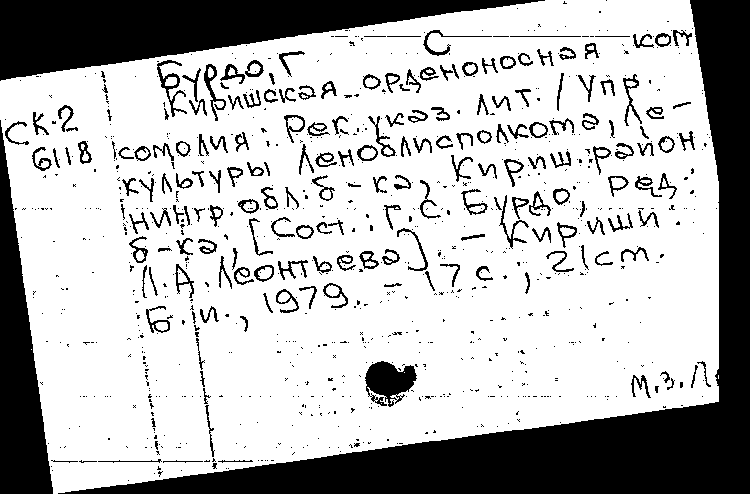 Бурдо, Г С
Киришская орденоносная ком
СК-2
6118
сомолия: Рек. указ. лит. / Упр.
культуры Леноблисполкома, Ле-
нингр. обл. б-ка, Кириш. район.
б-ка; [Сост.: Г.С. Бурдо; Ред.:
Л.А. Леонтьева] - Кириши:
Б. и., 1979. - 17 с.; 21 cm.
М.З.